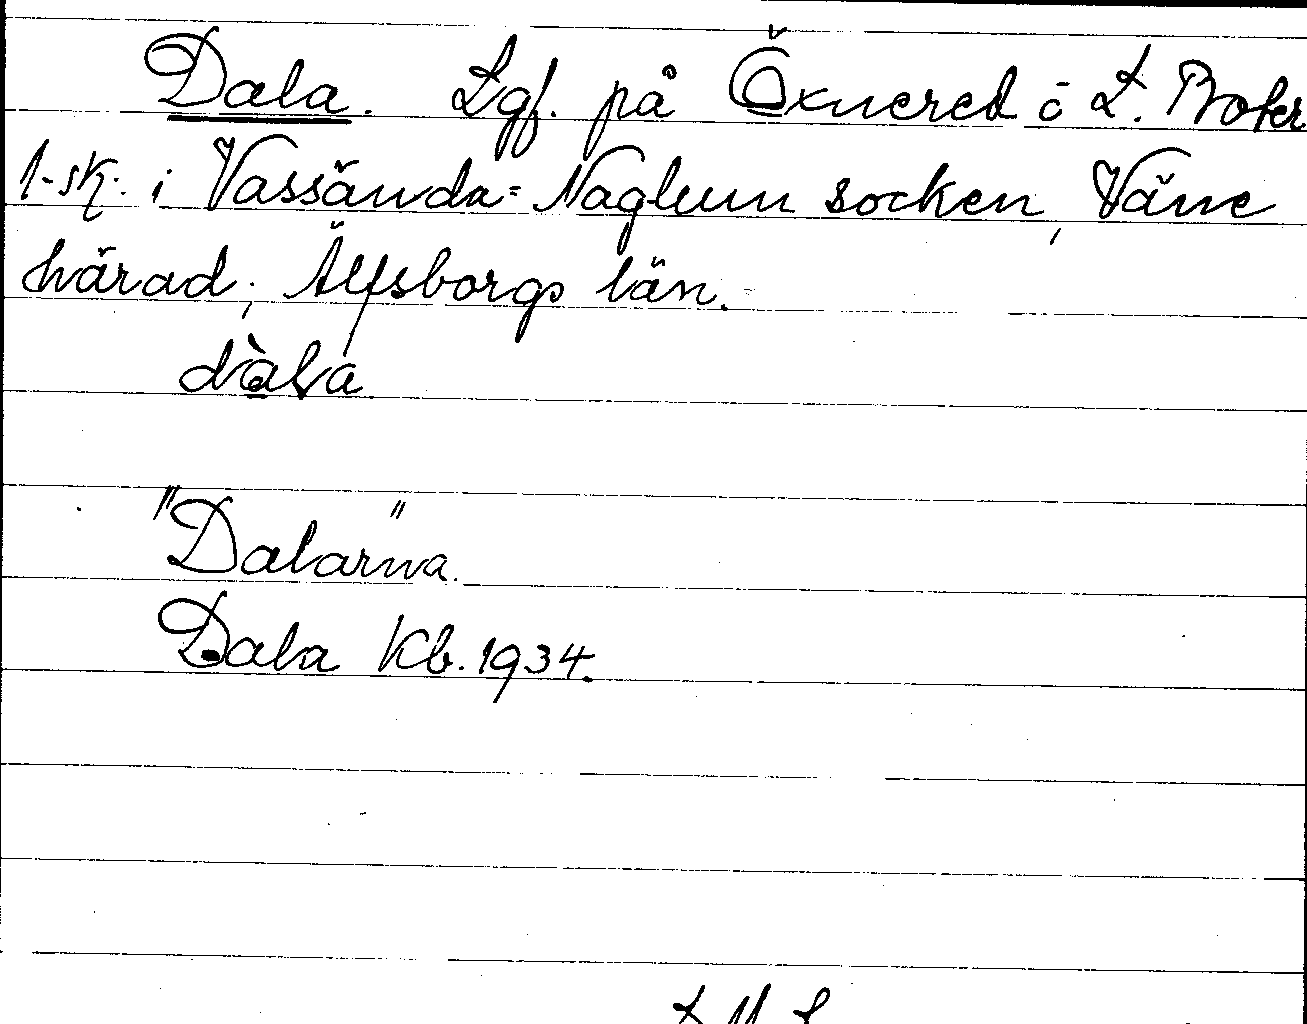 Dala. Lgf. på Öxnered i L.
1-sk. i Vassända-Naglum socken, Väne
härad, Älfsborgs län.
dàla
"Dalarna"
Dala Kb. 1934.